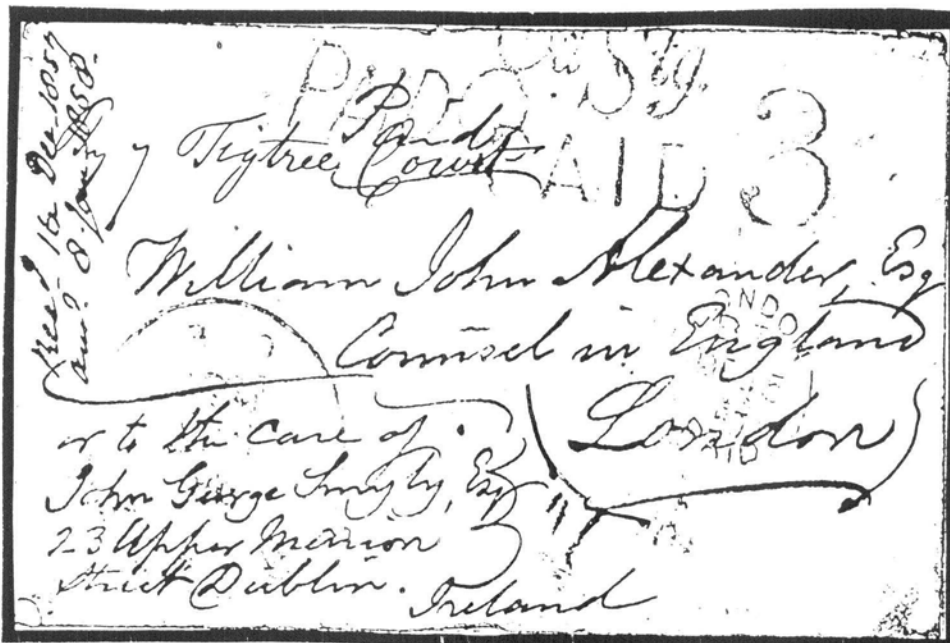 Recd 16 Dec 1857
answd 8 Jany 1858.
PAID
Paid
PAID 3
7 Figtree Court
William John Alexander, Esq
Counsel in England
London
or to the care of
John George Smyly, Esq
23 Upper Merrion
Street Dublin.
Ireland